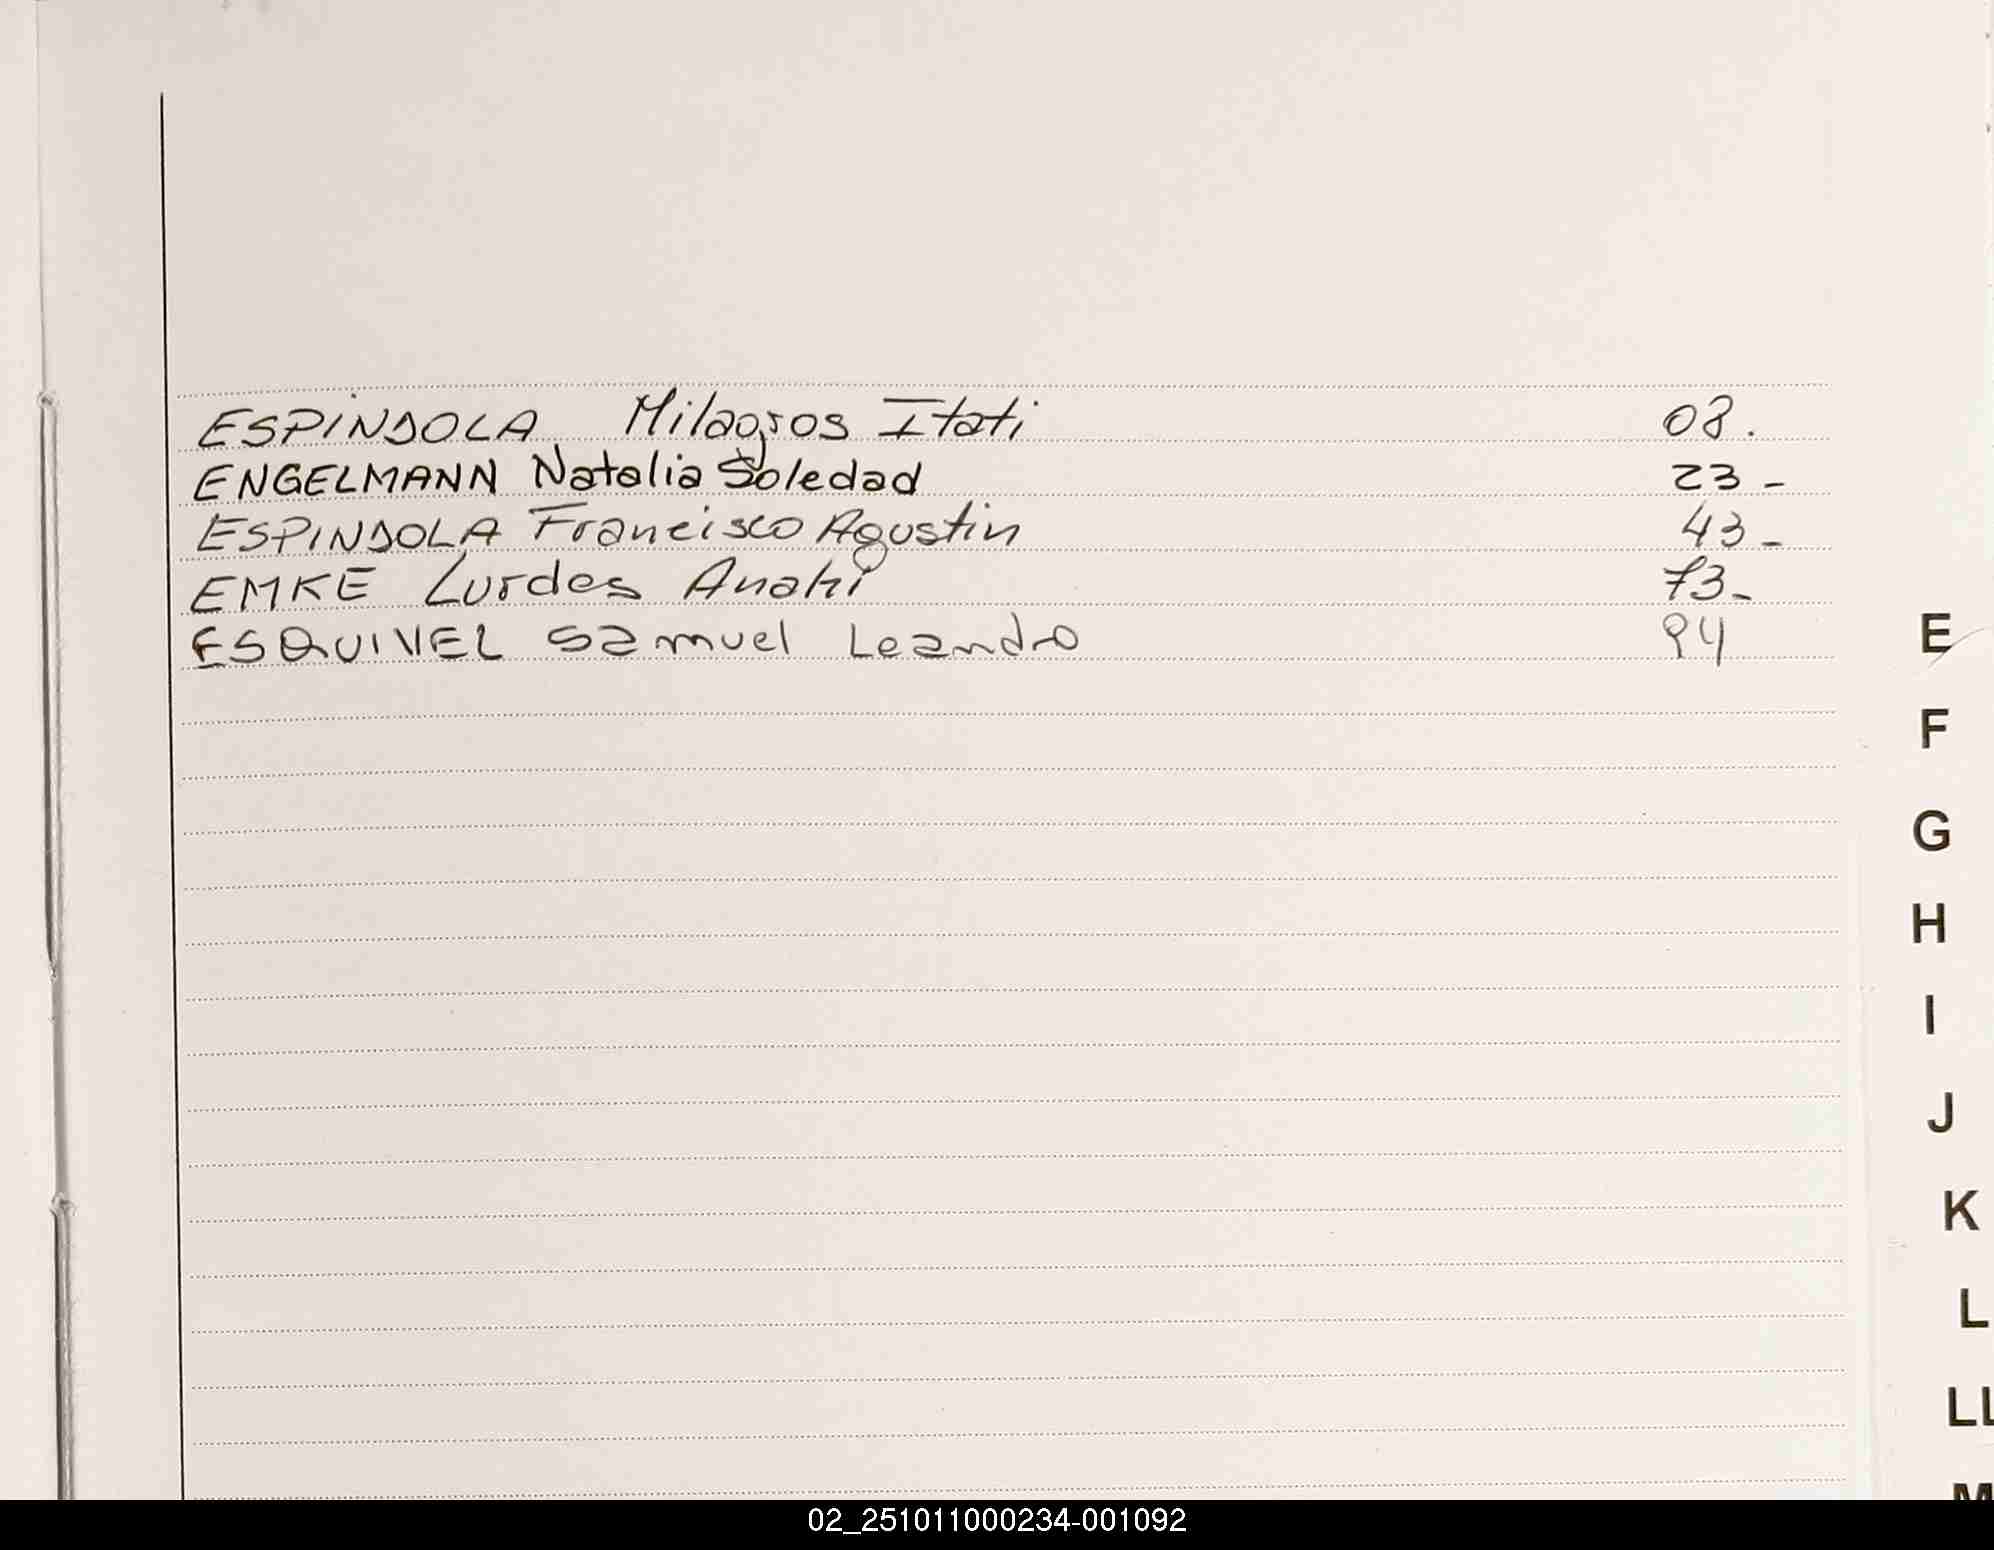 ESPINDOLA Milagros Itati 08.
ENGELMANN Natalia Soledad 23-
ESPINDOLA Francisco Agustin 43-
EMKE Lurdes Anahi 73-
ESQUIVEL Samuel Leandro 94
E
F
G
H
I
J
K
L
LL
M
02_251011000234-001092